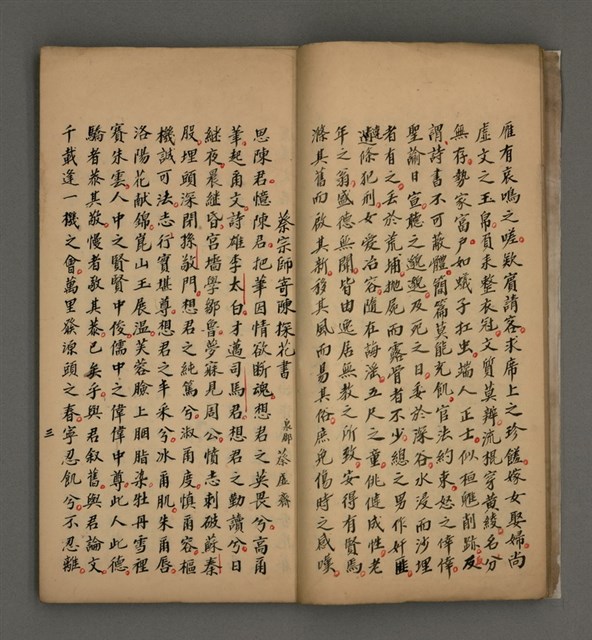 雁有哀鳴之嗟欵賓請客求席上之珍饈嫁女娶婦尚
虛文之玉帛員采整衣冠文質莫辨流捉穿黃綾名分
無存勢家富戶如蟻子扛虫端人正士似桓魋削跡反
謂詩書不可蔽體簡篇莫能充飢官法約束恕之倖倖
聖諭日宣聽之邈邈及死之日委於深谷水浸而沙埋
者有之丟於荒埔拋屍而露骨者不少總之男作奸匪
遭條犯刑女愛冶容隨在誨淫五尺之童佻健成性老
年之翁盛德無聞皆由逸居無教之所致安得有賢焉
滌其舊而啟其新移其風而易其俗庶免傷時之感嘆
蔡宗師寄陳探花書
泉郡 蔡虛齋
思陳君憶陳君把華因情欲斷魂想君之英畏兮高甫
華起甫文詩雄李太白才邁司馬君想君之勤讀兮日
継夜晨継昏官墻學鄒魯夢寐見周公憤志刺破蘇秦
股埋頭深閉孫敬門想君之純篤兮淑甫度慎甫容樞
機誠可法志行實堪尊想君之丰采兮冰甫肌朱甫唇
洛陽花献錦崑山玉展温芙蓉臉上胭脂染牡丹雪裡
賽朱雲人中之賢賢中俊儒中之偉偉中尊此人此德
驕者恭其敬慢者敬其恭已矣乎與君叙舊與君論文
千載逢一機之會萬里發源頭之春寧忍飢兮不忍離
三